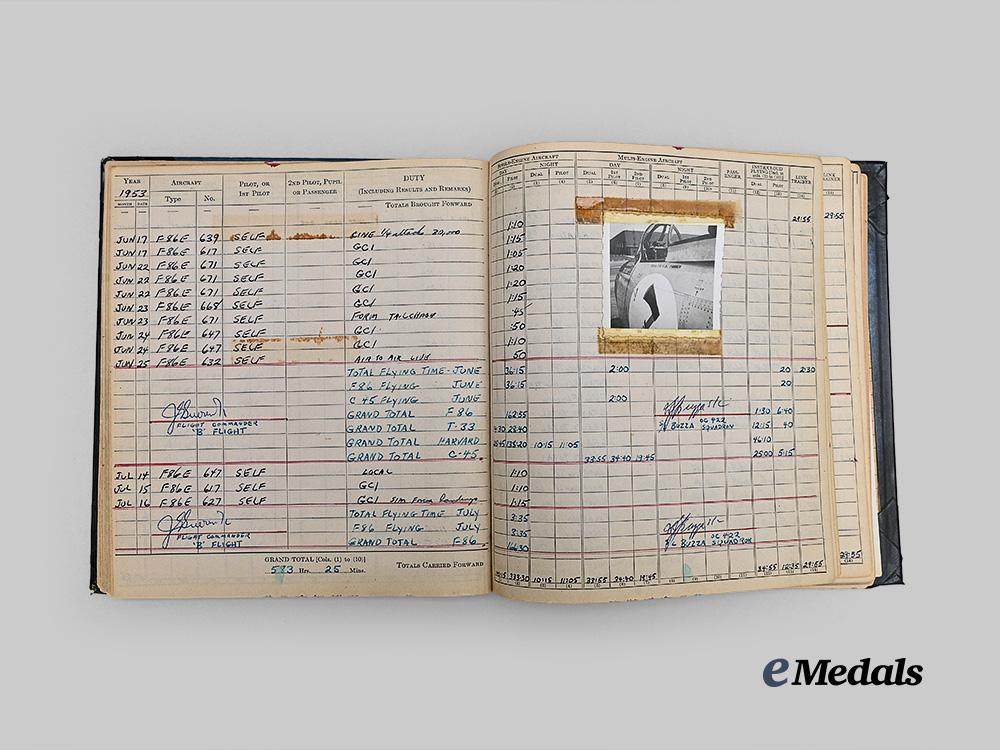 YEAR AIRCRAFT PILOT, OR 1ST PILOT 2ND PILOT, PUPIL OR PASSENGER DUTY (INCLUDING RESULTS AND REMARKS)
1953
MONTH DATE Type No.
TOTALS BROUGHT FORWARD
JUN 17 F86E 639 SELF CINE 1/4 attacks 30,000 1:10
JUN 17 F86E 617 SELF GCI 1:15
JUN 22 F86E 671 SELF GCI 1:05
JUN 22 F86E 671 SELF GCI 1:20
JUN 22 F86E 671 SELF GCI 1:20
JUN 23 F86E 668 SELF GCI 1:15
JUN 23 F86E 671 SELF FORM TAILCHASE :45
JUN 24 F86E 647 SELF GCI :50
JUN 24 F86E 647 SELF GCI 1:10
JUN 25 F86E 632 SELF AIR TO AIR :50
TOTAL FLYING TIME - JUNE 36:15 2:00 20 2:30
F86 FLYING JUNE 36:15 20
C 45 FLYING JUNE 2:00
GRAND TOTAL F86 162:55 1:30 6:40
GRAND TOTAL T-33 28:40 12:15 40
GRAND TOTAL HARVARD 10:15 11:05 46:10
GRAND TOTAL C-45 33:55 34:40 19:45 25:00 5:15
FLIGHT COMMANDER
'B' FLIGHT
JUL 14 F86E 647 SELF LOCAL 1:10
JUL 15 F86E 617 SELF GCI 1:10
JUL 16 F86E 627 SELF GCI 1:15
TOTAL FLYING TIME JULY 3:35
F86 FLYING JULY 3:35
GRAND TOTAL F86 166:30
FLIGHT COMMANDER
'B' FLIGHT
GRAND TOTAL [Cols. (1) to (10)]
583 Hrs. 25 Mins.
TOTALS CARRIED FORWARD
SINGLE-ENGINE AIRCRAFT MULTI-ENGINE AIRCRAFT
DAY NIGHT DAY NIGHT PASSENGER LINK TRAINER
DUAL PILOT DUAL 1ST PILOT 2ND PILOT DUAL 1ST PILOT 2ND PILOT DUAL PILOT
29:55 29:55
OC 422
S/L BUZZA SQUADRON
OC 422
S/L BUZZA SQUADRON
333:30 10:15 11:05 33:55 34:40 19:45 12:35 29:55
29:55
eMedals